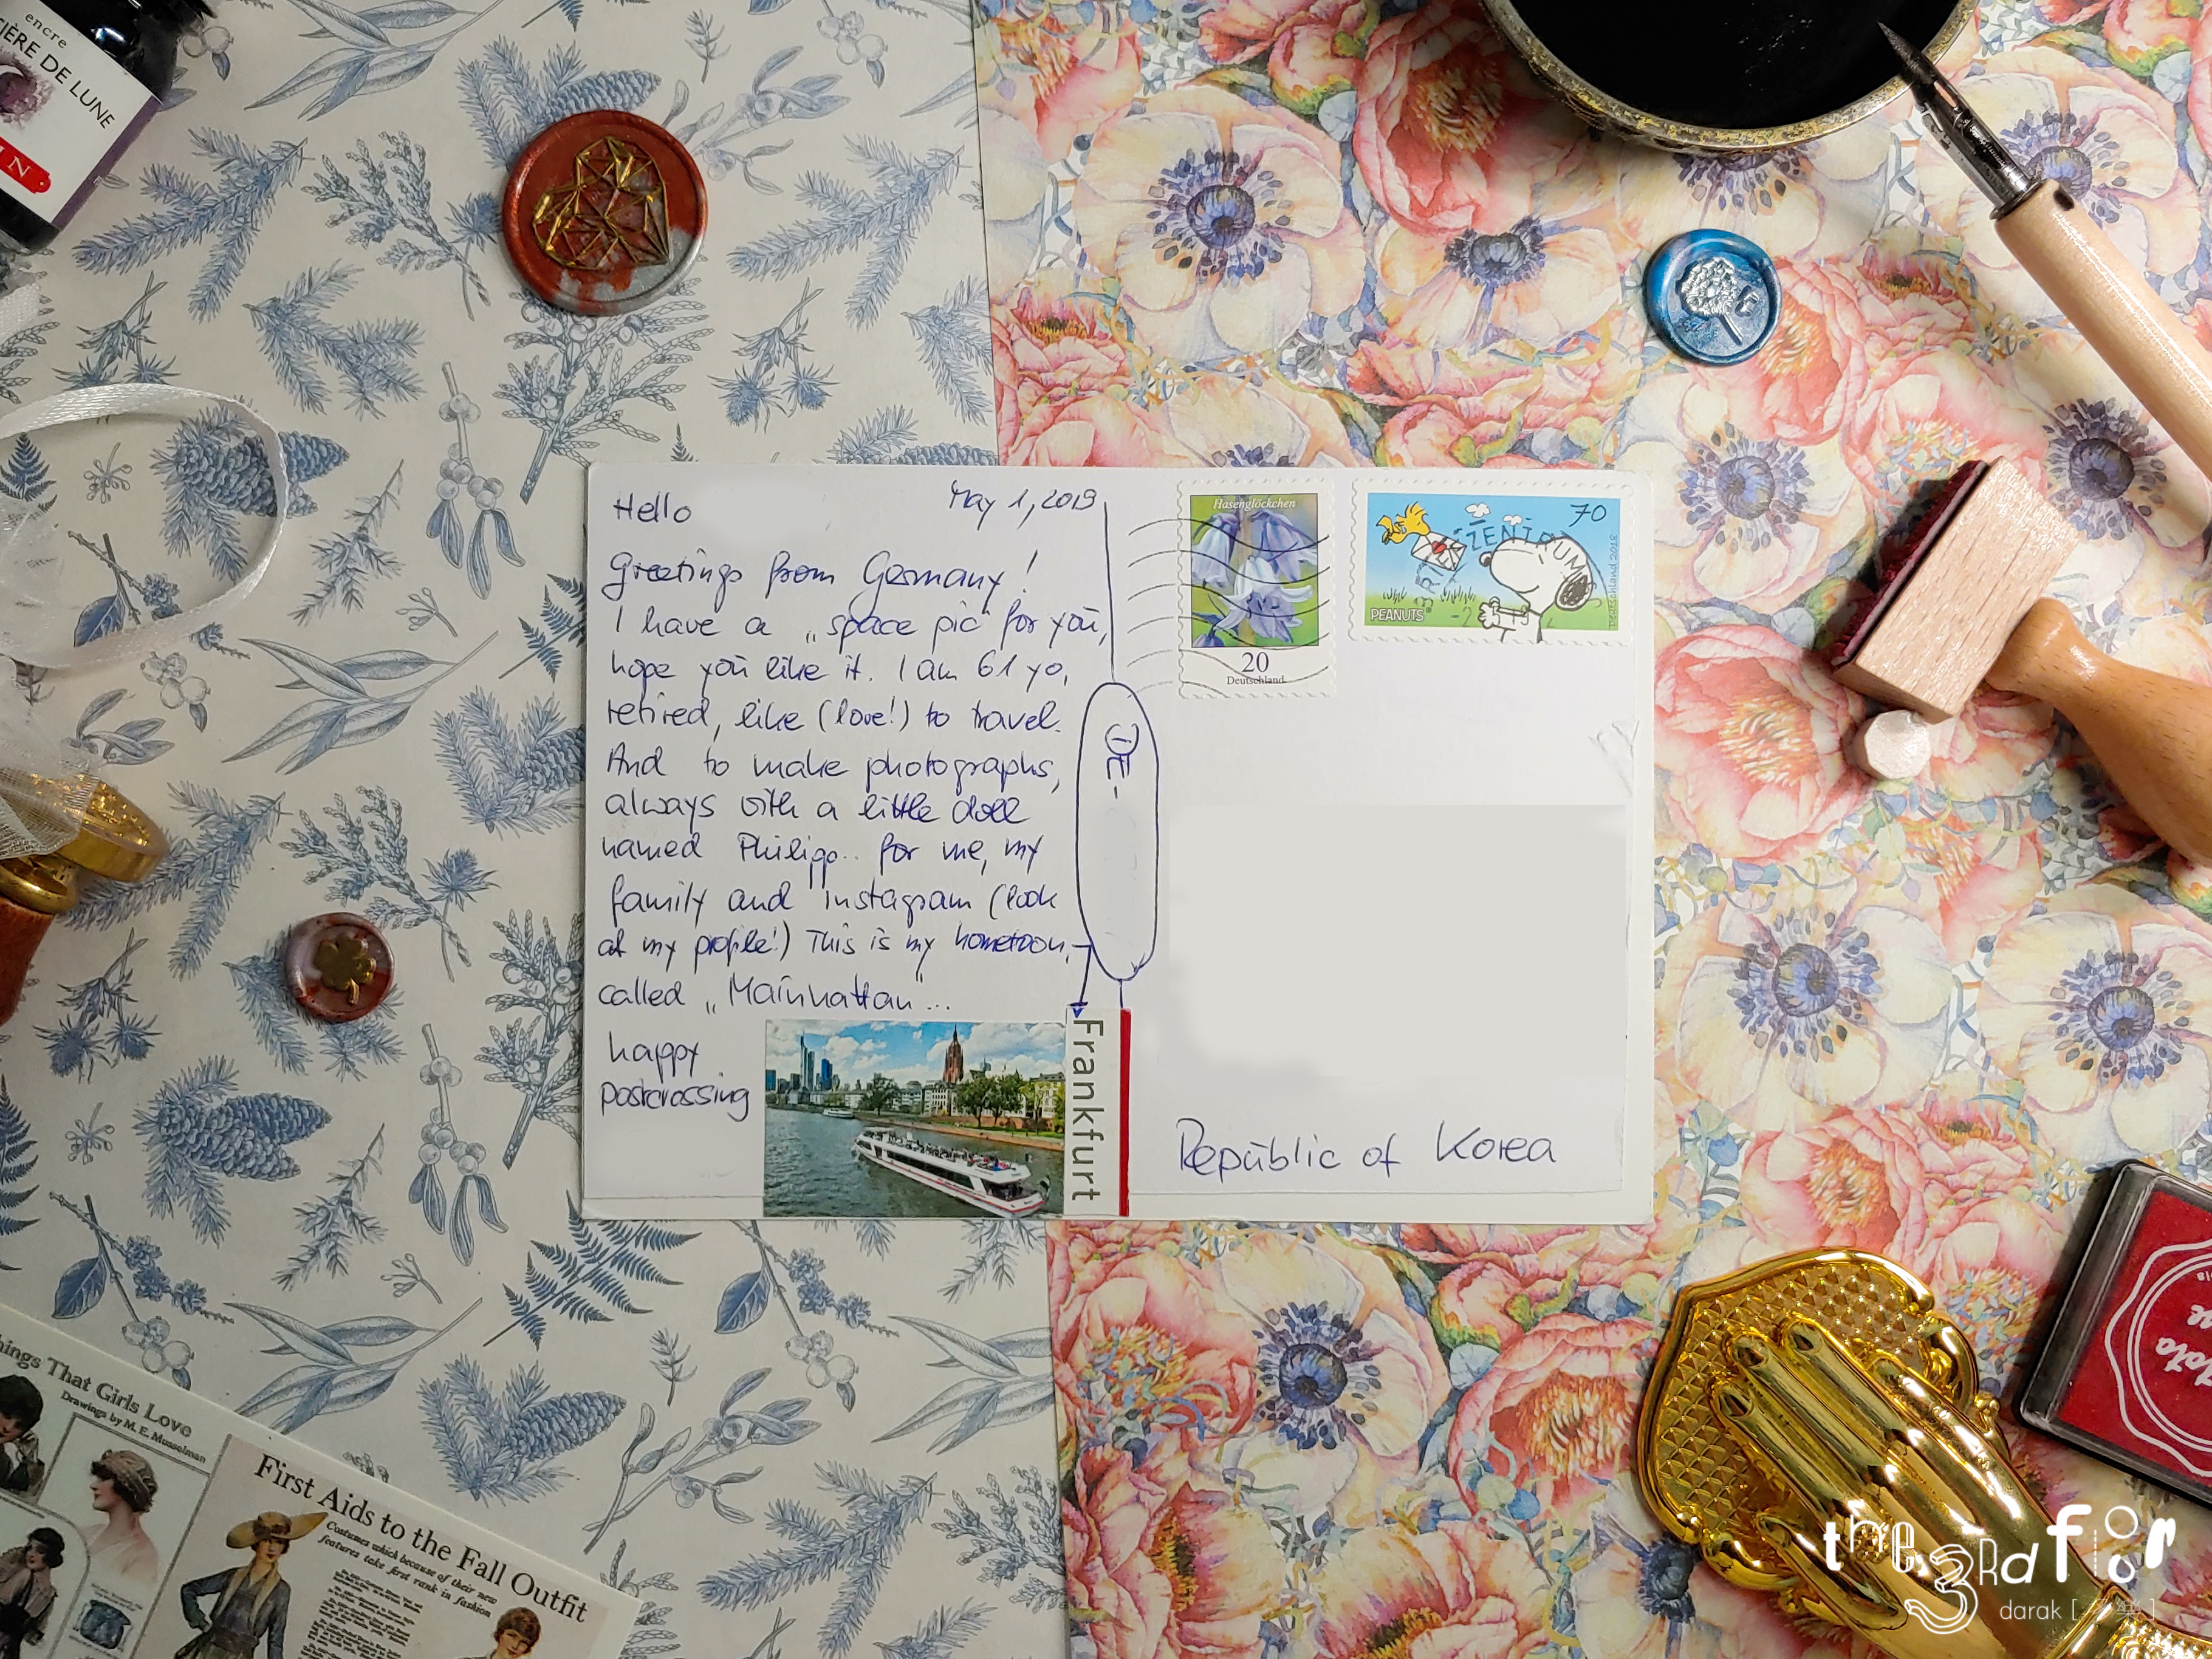 encre
IÈRE DE LUNE
IN
Hello
May 1, 2019
Greetings from Germany!
I have a „space pic“ for you,
hope you like it. I am 61 yo,
retired, like (love!) to travel.
And to make photographs,
always with a little doll
named Philipp.. for me, my
family and Instagram (look
at my profile!) This is my hometown,
called „Mainhattan“...
happy
postcrossing
DE-
Frankfurt
Hasenglöckchen
20
Deutschland
70
ZENTRUM
PEANUTS
Deutschland 2018
Republic of Korea
hings That Girls Love
Drawings by M. E. Musselman
First Aids to the Fall Outfit
Costumes which because of their new
features take first rank in fashion
the 3Rd floor
darak [